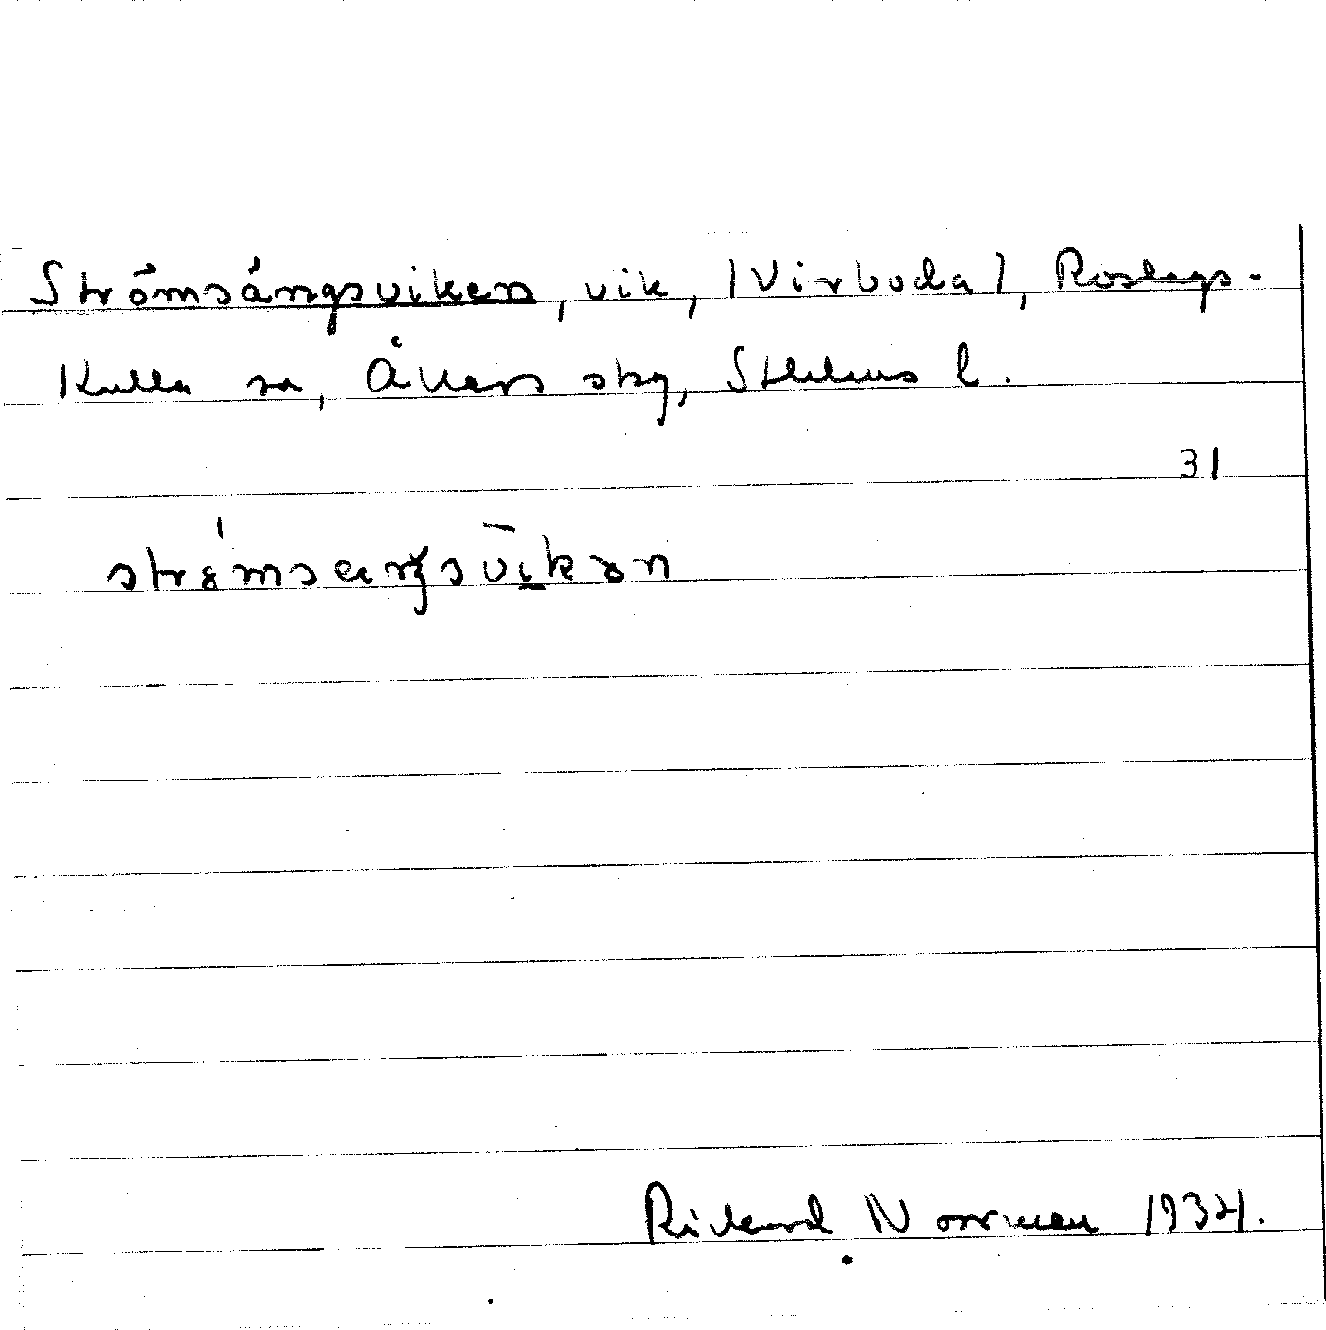 Strömsängsviken, vik, /Virboda/, Roslags-
Kulla sn, Åkers skg, Sthlms l.
31
Rickard Norrman 1934.